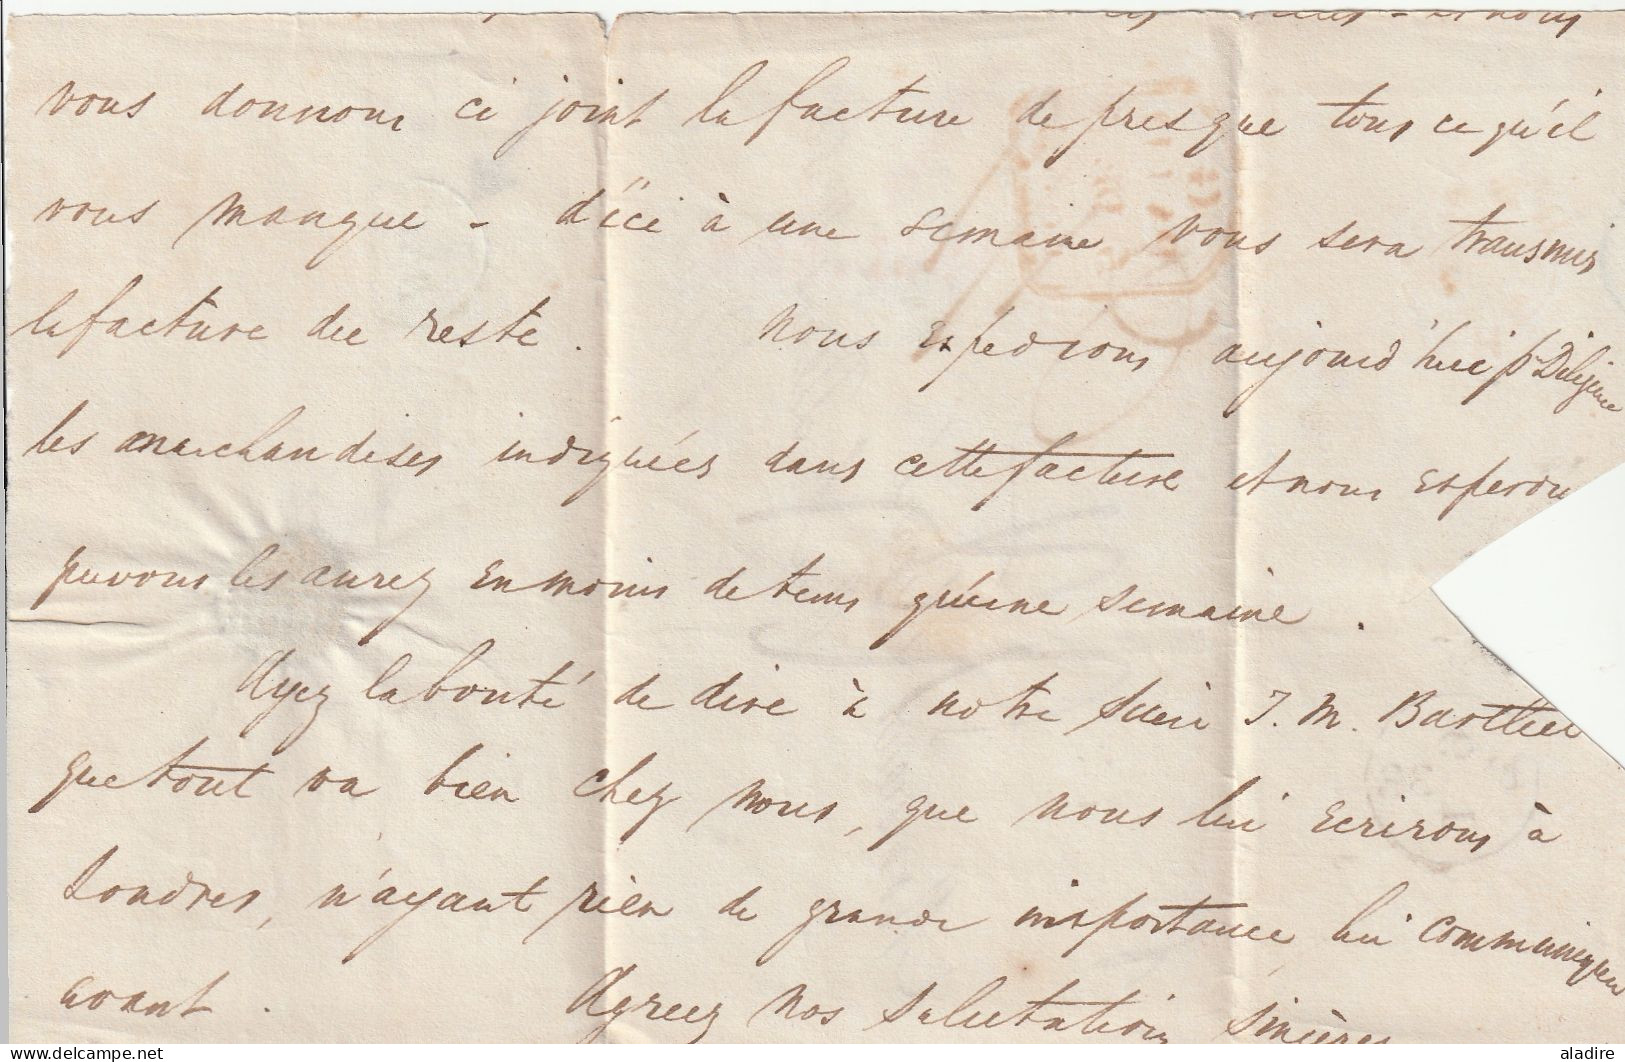 et nous
vous donnons ci joint la facture de presque tous ce qu'il
vous manque - d'ici à une semaine vous sera transmis
la facture du reste. Nous Expedions aujourd'hui pr Diligence
les marchandises indiquées dans cette facture et nous Esperons
que vous les aurez En moins de tems qu'une semaine.
Ayez la bonté de dire à notre Sieur J. M. Barthe
que tout va bien chez nous, que nous lui Ecrirons à
Londres, n'ayant rien de grande importance lui communiquer
avant. Agreez nos Salutations sincères
delcampe.net
aladire